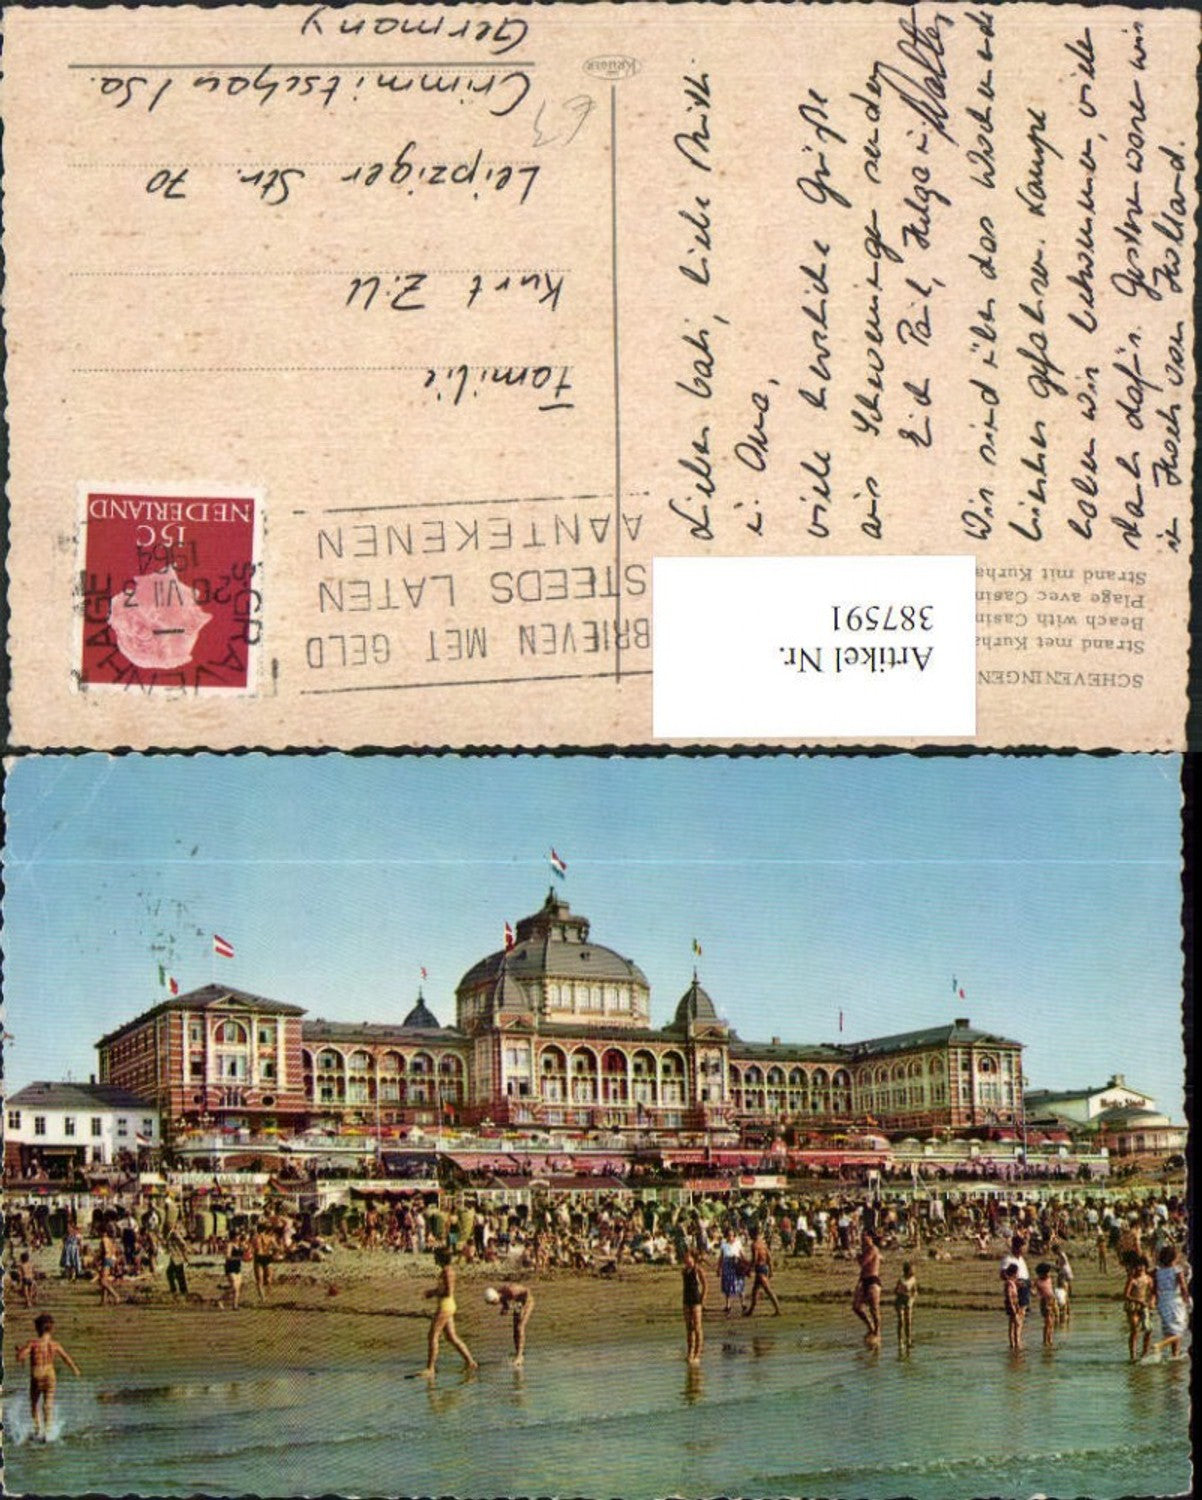 Lieber Vati, liebe Mutti
u. Oma,
viele herzliche Grüße
aus Scheveningen senden
Euch Paul, Helga u. Walter
Wir sind über das Wochenende
hierher gefahren. Karape
haben wir bekommen, vielen
Dank dafür. Gestern waren wir
in Hoek van Holland.
Familie
Kurt Zill
Leipziger Str. 70
Crimmitschau / Sa.
Germany
KRÜGER
63
NEDERLAND
15 C
'S GRAVENHAGE
1964
BRIEVEN MET GELD
STEEDS LATEN
AANTEKENEN
SCHEVENINGEN
Strand met Kurha
Beach with Casin
Plage avec Casin
Strand mit Kurha
Artikel Nr.
387591